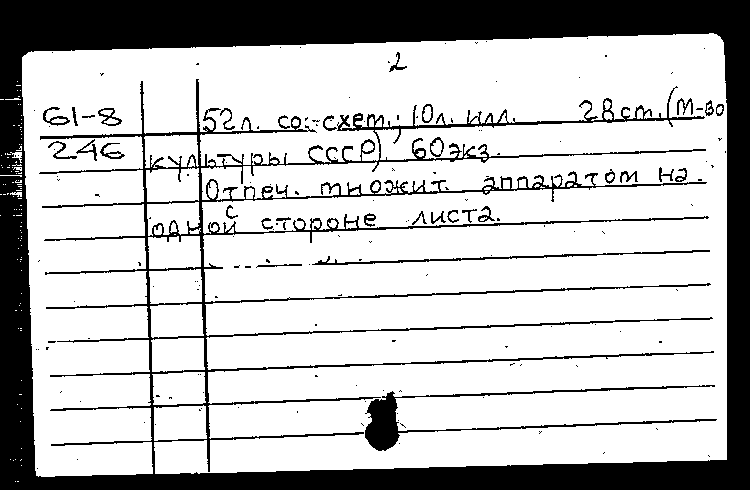 2
61-8 52л. со.-схем.; 10л. илл. 28cm. (М-во
246 культуры СССР). 60экз.
Отпеч. множит. аппаратом на
одной стороне листа.